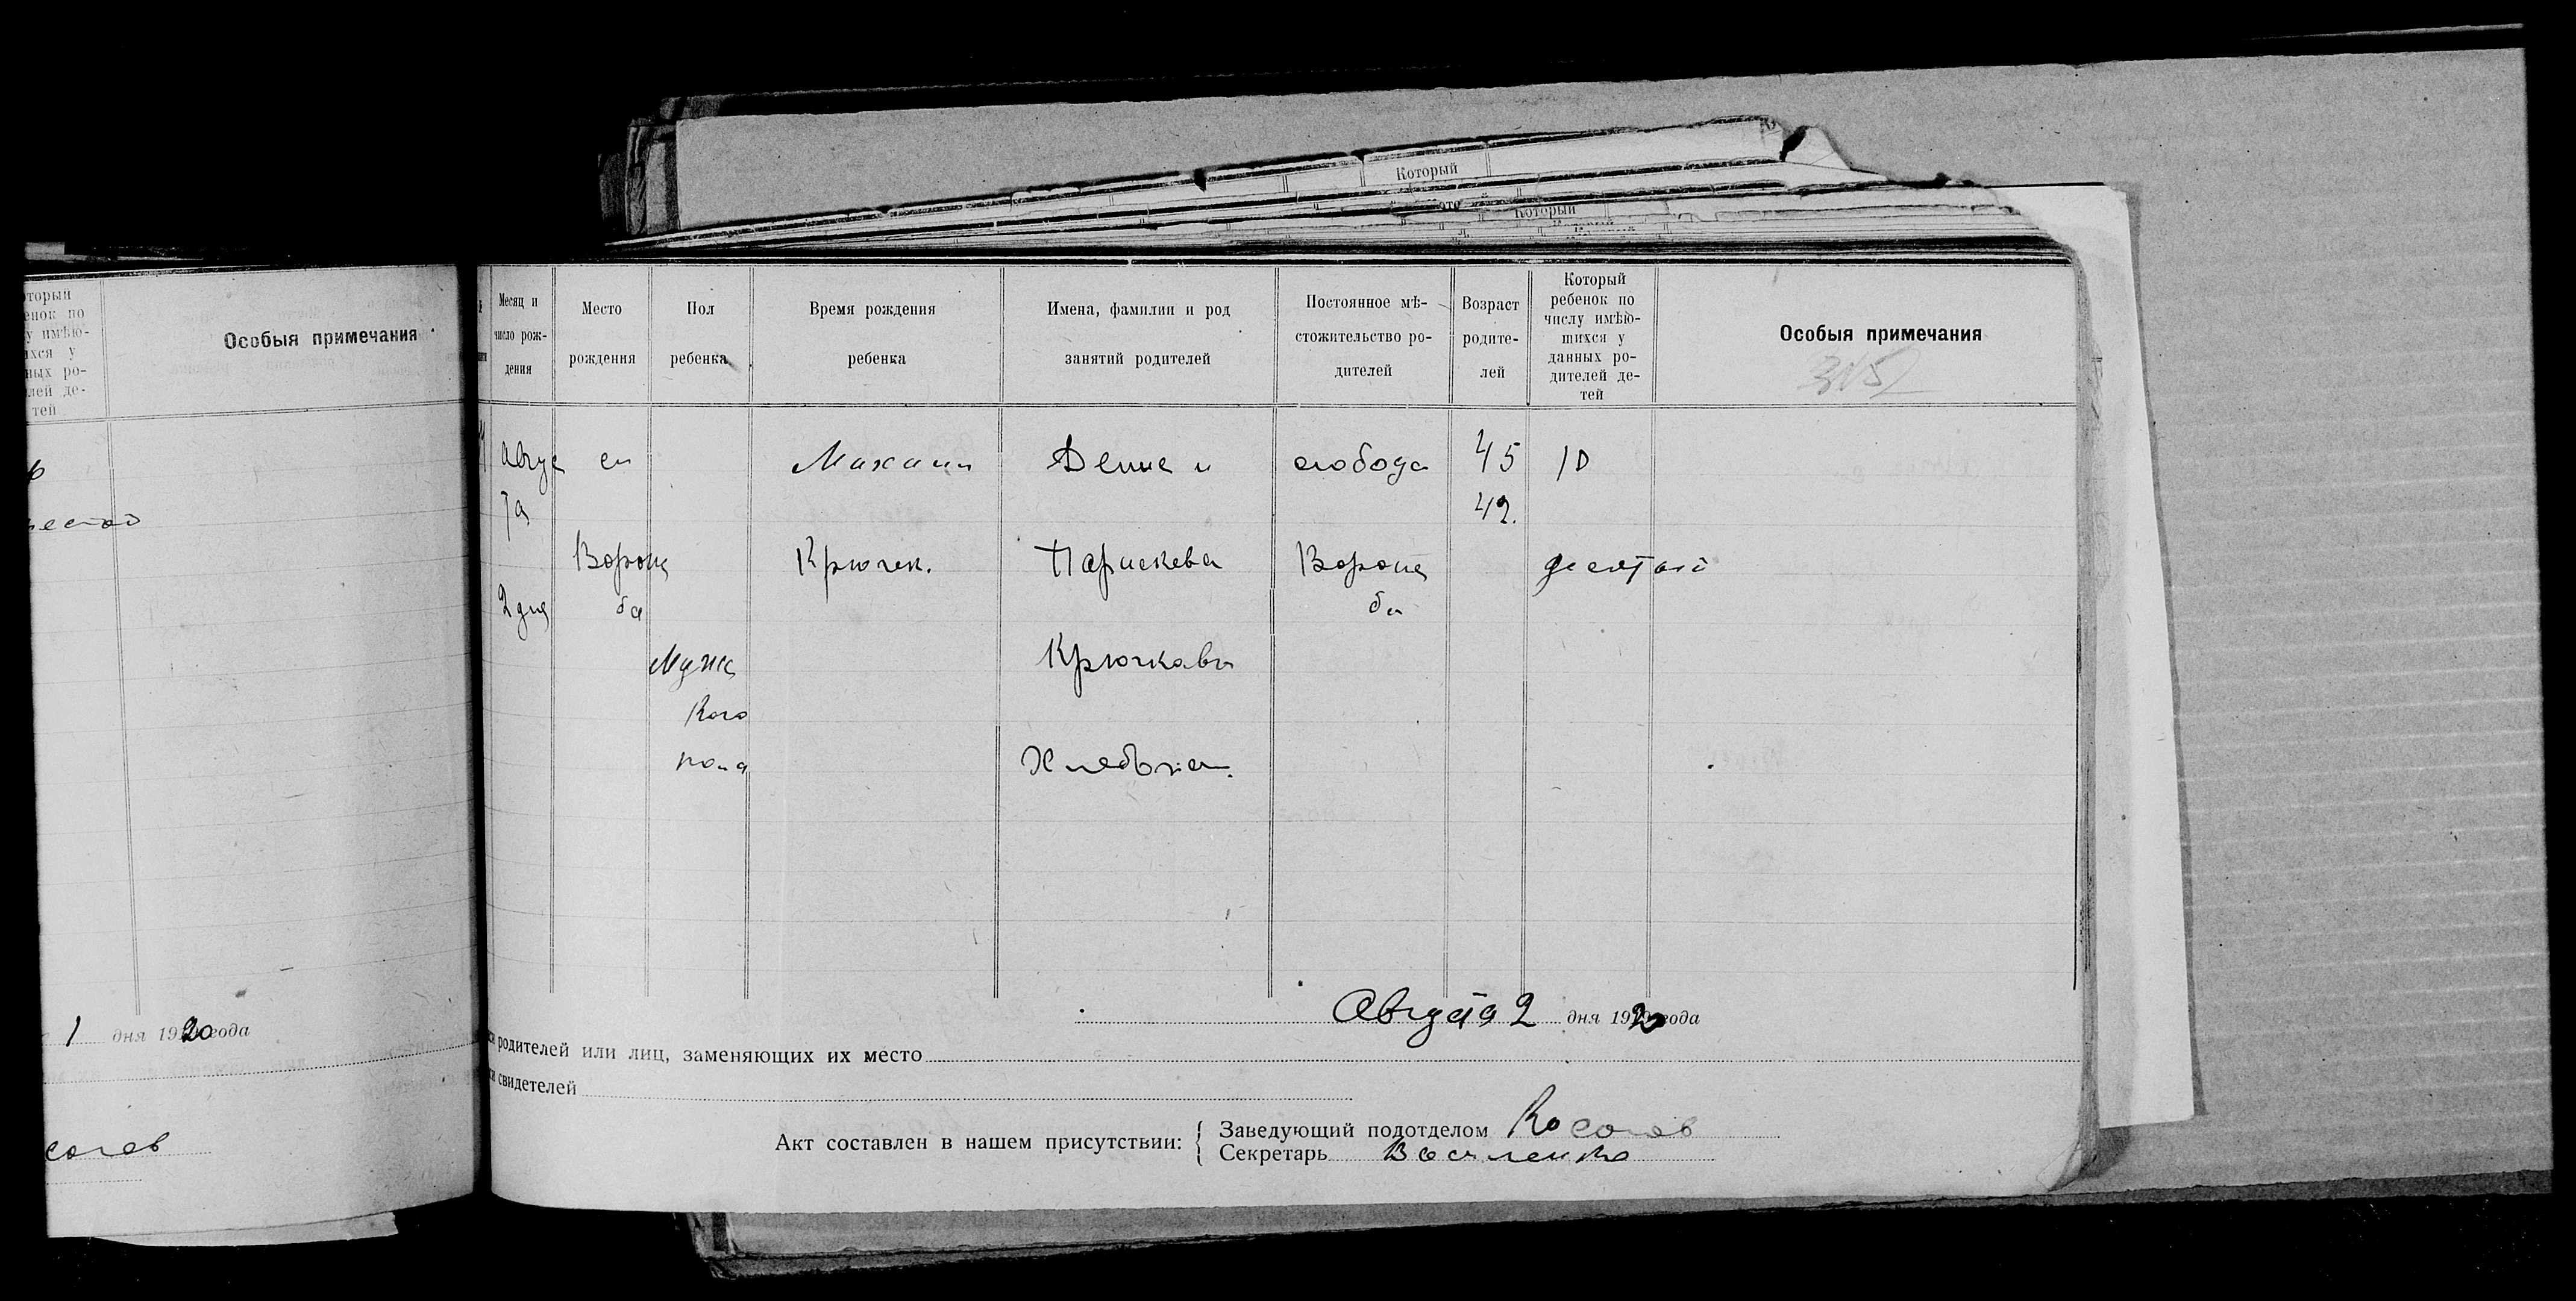 Который
Который
оторый
енок по
у имѣю-
ихся у
ных ро-
лей де-
тей
Особыя примечания
1 дня 1920 года
Месяц и
число рож-
дения
Место
рождения
Пол
ребенка
Время рождения
ребенка
Имена, фамилии и род
занятий родителей
Постоянное мѣ-
стожительство ро-
дителей
Возраст
родите-
лей
Который
ребенок по
числу имѣю-
щихся у
данных ро-
дителей де-
тей
Особыя примечания
315
Авгус
та
2 дня
сл
Ворон
ба
Муж
кого
пола
Михаил
Крючек.
Дениси
Параскева
Крючкова
Хлебопаш.
слобода
Ворон
ба
45
42.
10
десятой
Августа 2 дня 1920 года
родителей или лиц, заменяющих их место
свидетелей
Акт составлен в нашем присутствии:
Заведующий подотделом
Секретарь Василенко